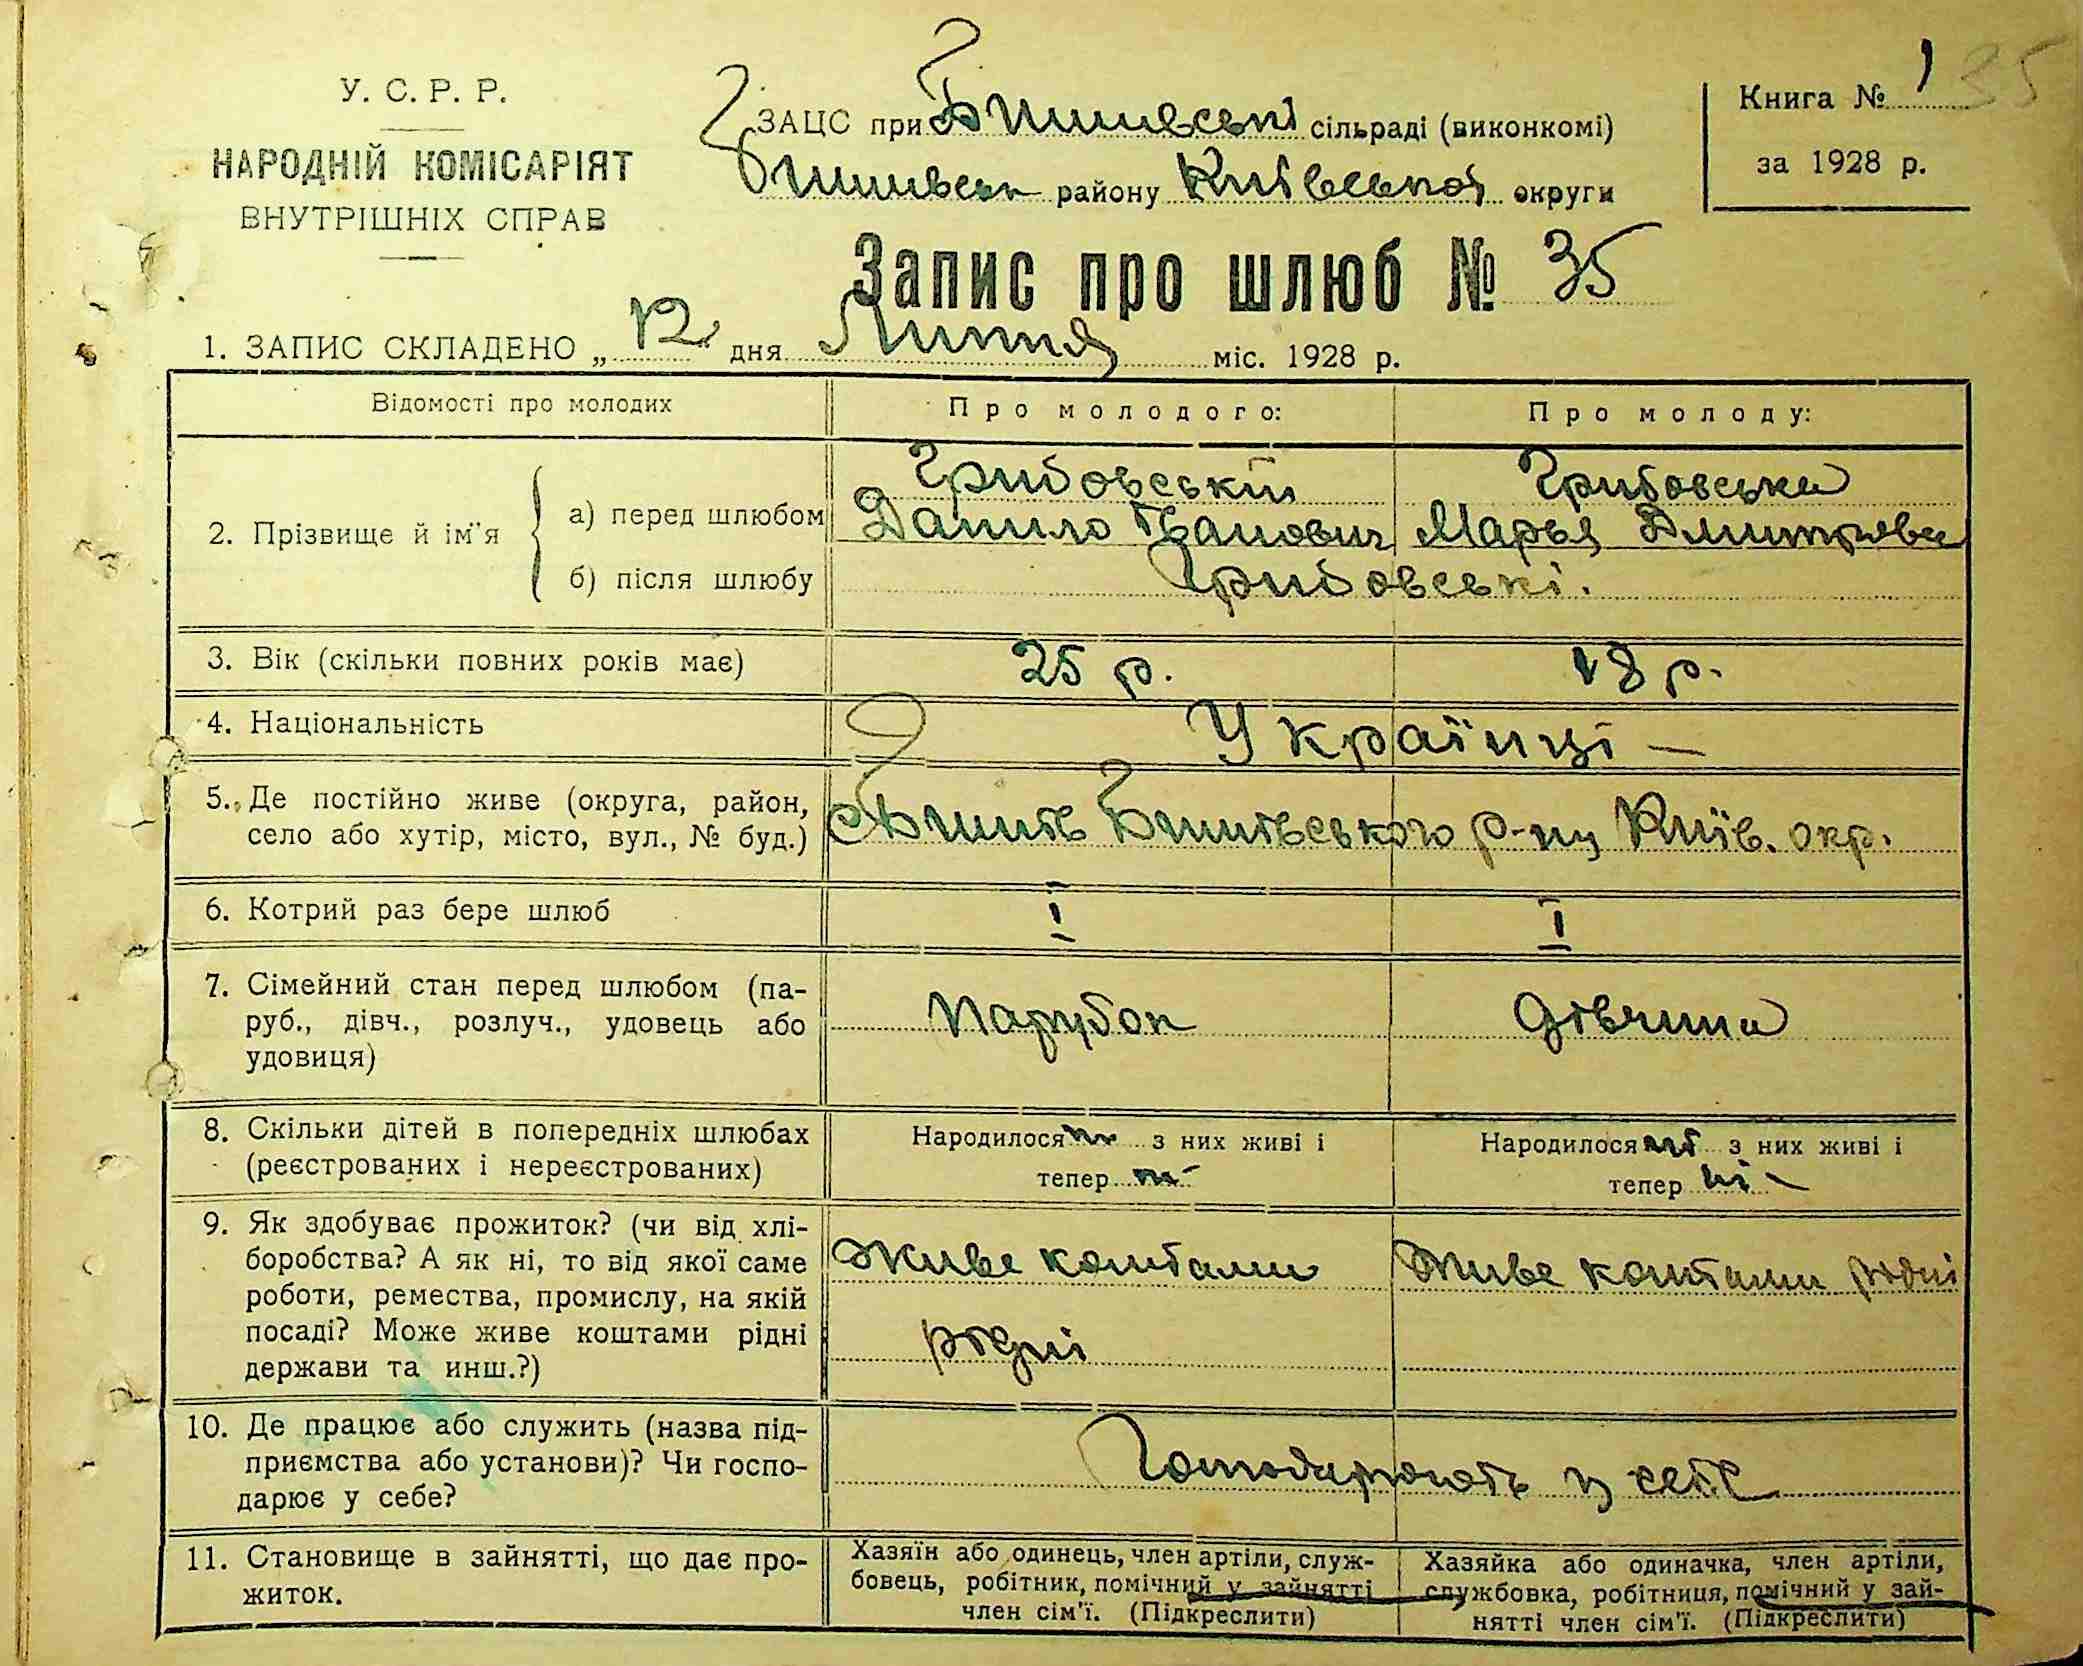 У. С. Р. Р.
НАРОДНІЙ КОМІСАРІЯТ
ВНУТРІШНІХ СПРАВ
ЗАЦС при Бишевські сільраді (виконкомі)
Бишевськ району Київської округи
Книга № 1
35
за 1928 р.
Запис про шлюб № 35
1. ЗАПИС СКЛАДЕНО „ 12 " дня Липня міс. 1928 р.
Відомості про молодих
Про молодого:
Про молоду:
2. Прізвище й ім'я
а) перед шлюбом
Грибовський
Данило Іванович
Грибовська
Марья Дмитрієва
б) після шлюбу
Грибовські.
3. Вік (скільки повних років має)
25 р.
18 р.
4. Національність
Українці —
5. Де постійно живе (округа, район,
село або хутір, місто, вул., № буд.)
с Бишів Бишівського р-ну Київ. окр.
6. Котрий раз бере шлюб
I
I
7. Сімейний стан перед шлюбом (па-
руб., дівч., розлуч., удовець або
удовиця)
Парубок
дівчина
8. Скільки дітей в попередніх шлюбах
(реєстрованих і нереєстрованих)
Народилося ні з них живі і
тепер ні
Народилося ні з них живі і
тепер ні -
9. Як здобуває прожиток? (чи від хлі-
боробства? А як ні, то від якої саме
роботи, ремества, промислу, на якій
посаді? Може живе коштами рідні
держави та инш.?)
Живе коштами
рідні
Живе коштами рідні
10. Де працює або служить (назва під-
приємства або установи)? Чи госпо-
дарює у себе?
Господарюють у себе
11. Становище в зайнятті, що дає про-
житок.
Хазяїн або одинець, член артіли, служ-
бовець, робітник, помічний у зайнятті
член сім'ї. (Підкреслити)
Хазяйка або одиначка, член артіли,
службовка, робітниця, помічний у зай-
нятті член сім'ї. (Підкреслити)